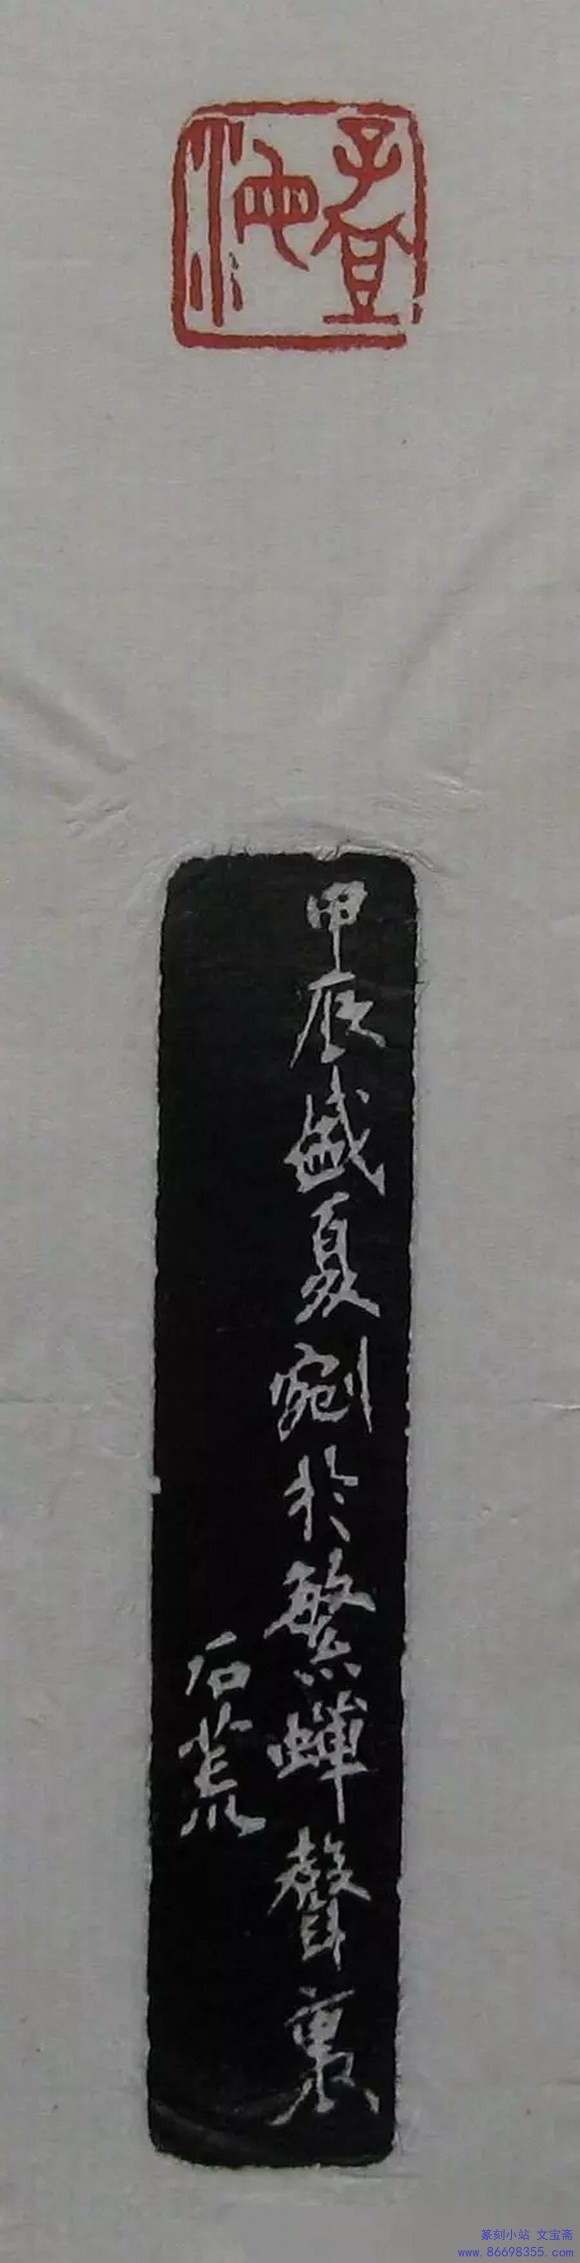 甲辰盛夏剜於繁蟬聲裏
石荒
篆刻小站 文宝斋
www.86698355.com